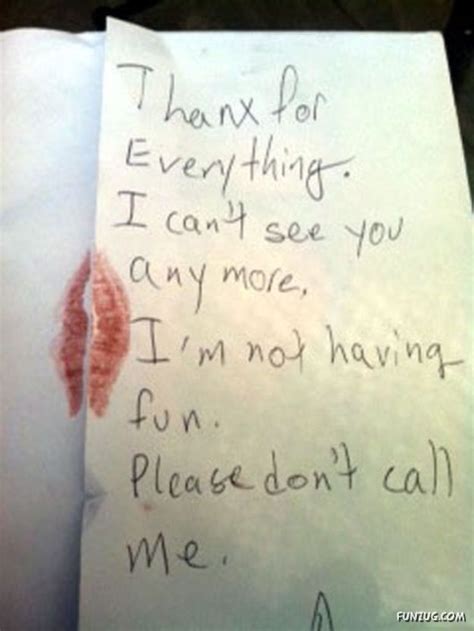 Thanx for
Everything.
I can't see you
any more.
I'm not having
fun.
Please don't call
me.
FUNZUG.COM